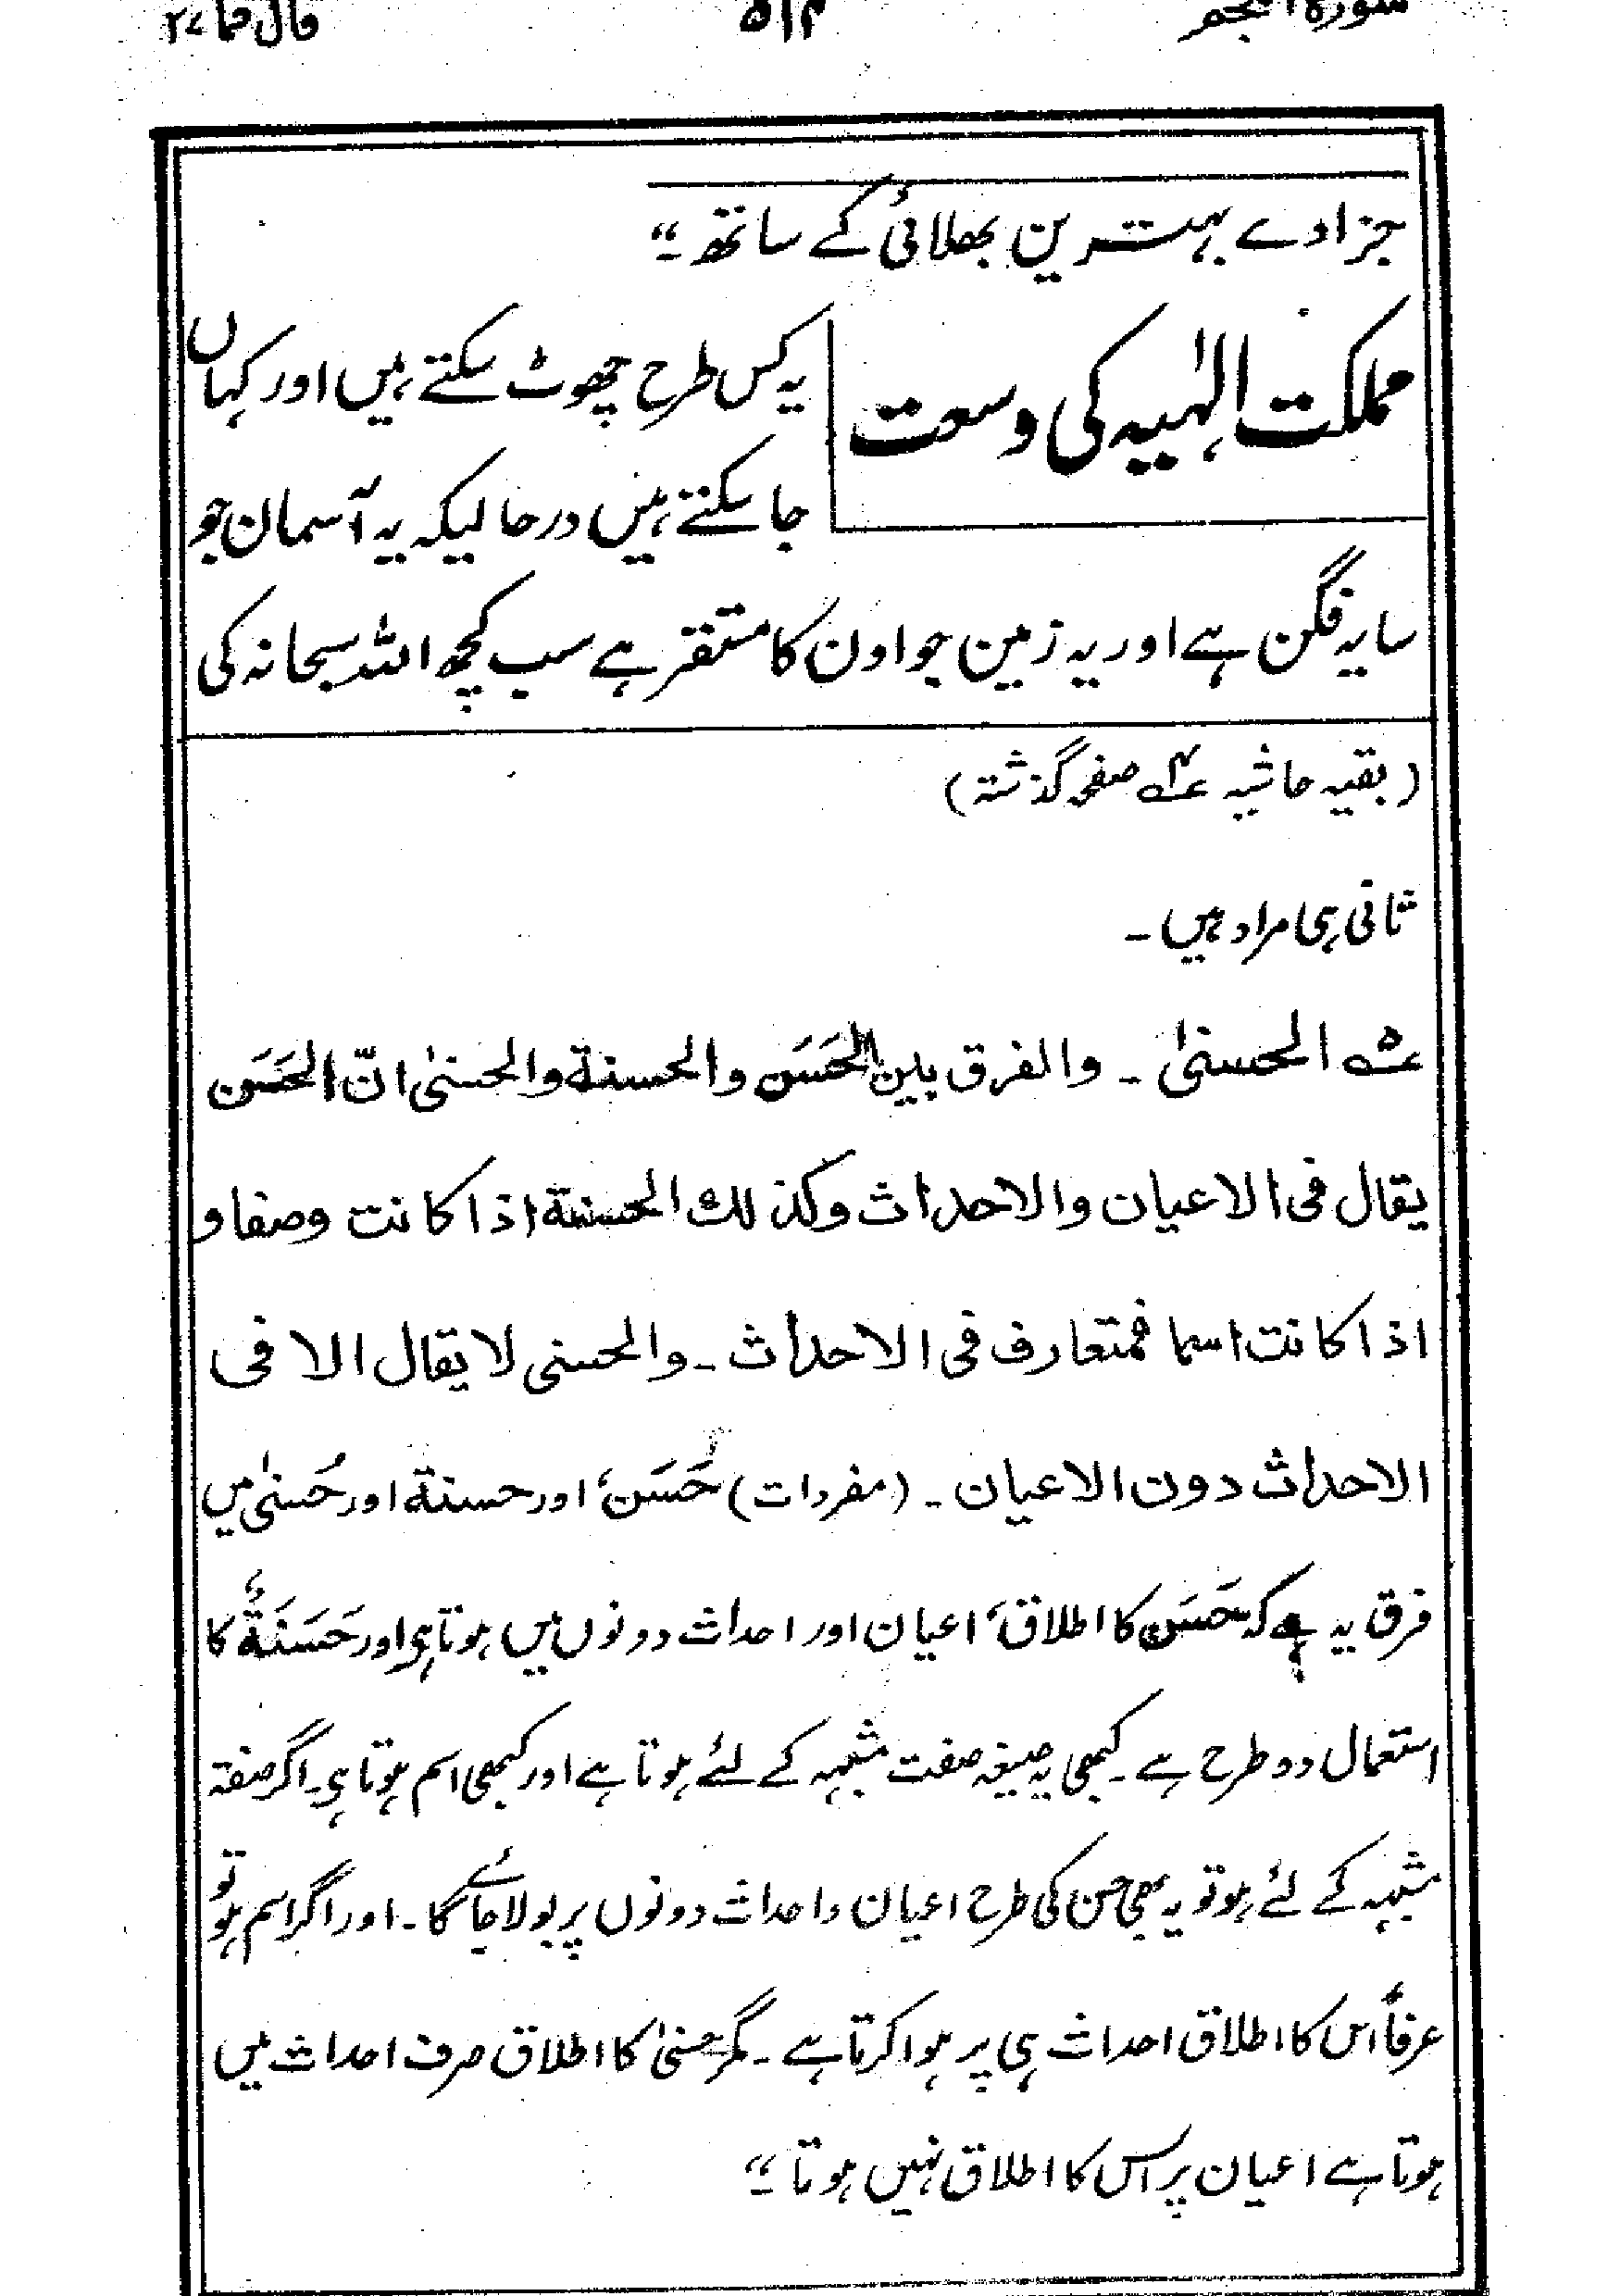 سورۃ النجم ۵۱۴ قال فما ۲۷
جزا دے بہترین بھلائی کے ساتھ۔“
مملکت الٰہیہ کی وسعت
یہ کس طرح چھوٹ سکتے ہیں اور کہاں
جا سکتے ہیں درحالیکہ یہ آسمان جو
سایہ فگن ہے اور یہ زمین جو اون کا متقر ہے سب کچھ اللہ سبحانہ کی
(بقیہ حاشیہ ؎۴ صفحہ گذشتہ)
ثانی ہی مراد ہیں۔
؎۵ الحسنیٰ۔ والفرق بین الحَسَن والحسنة والحسنیٰ انّ الحَسَن
یقال فی الاعیان والاحداث وکذلك الحسنة اذا کانت وصفا و
اذا کانت اسما فمتعارف فی الاحداث۔ والحسنی لا یقال الا فی
الاحداث دون الاعیان۔ (مفردات) حَسَنٌ اور حسنة اور حُسنیٰ میں
فرق یہ ہے کہ حَسَن کا اطلاق اعیان اور احداث دونوں میں ہوتا ہی اور حَسَنَةٌ کا
استعمال دو طرح ہے۔ کبھی یہ صیغہ صفت مشبہہ کے لئے ہوتا ہے اور کبھی اسم ہوتا ہی۔ اگر صفتہ
مشبہہ کے لئے ہو تو یہ بھی حسن کی طرح اعیان و احداث دونوں پر بولا جائے گا۔ اور اگر اسم ہو تو
عرفاً اس کا اطلاق احداث ہی پر ہوا کرتا ہے۔ مگر حسنیٰ کا اطلاق صرف احداث میں
ہوتا ہے اعیان پر اس کا اطلاق نہیں ہوتا۔“